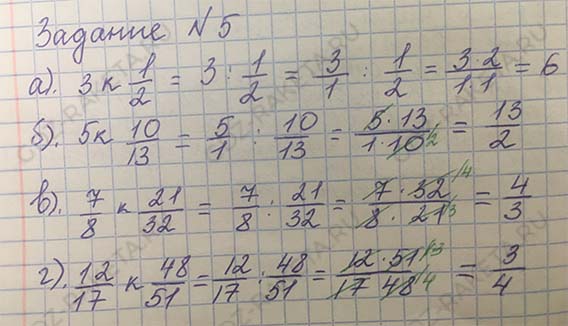 Задание №5
а). 3 к 1/2 = 3 : 1/2 = 3/1 : 1/2 = 3·2/1·1 = 6
б). 5 к 10/13 = 5/1 : 10/13 = 5·13/1·10 2 = 13/2
в). 7/8 к 21/32 = 7/8 : 21/32 = 7·32 4/8·21 3 = 4/3
г). 12/17 к 48/51 = 12/17 : 48/51 = 12·51 3/17 48 4 = 3/4